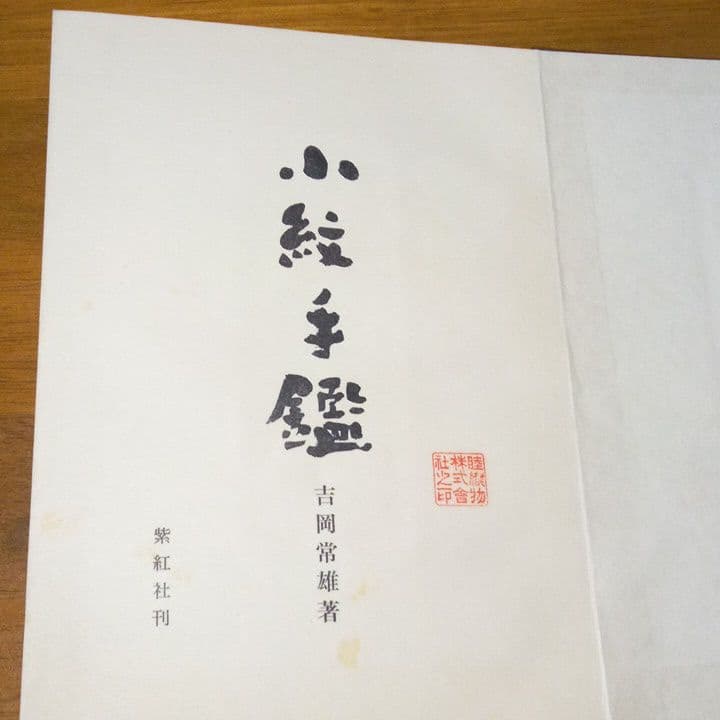 睦織物
株式會
社之印
小紋手鑑
吉岡常雄著
紫紅社刊